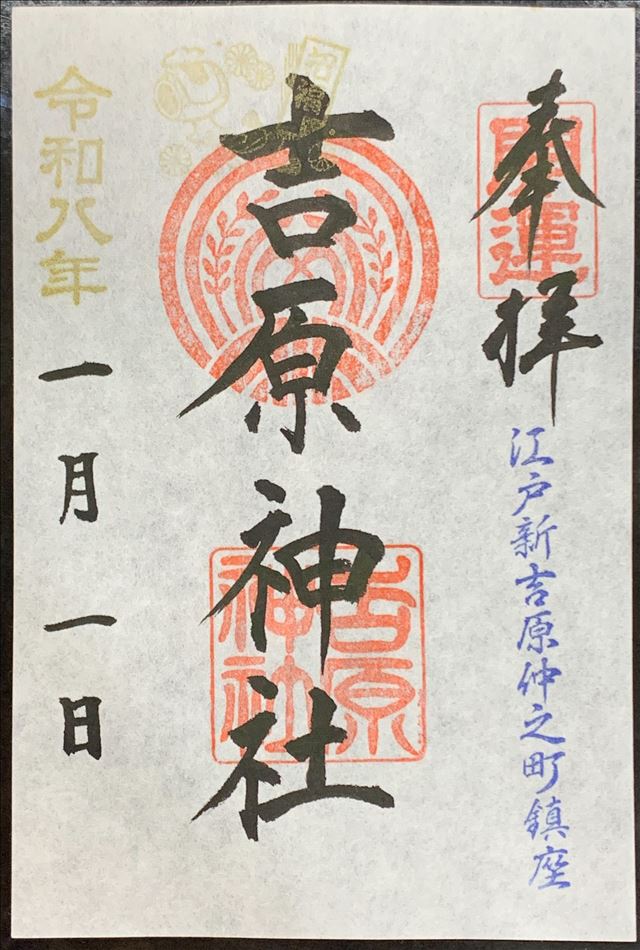 奉拝
開運
江戸新吉原仲之町鎮座
吉原神社
吉原神社
令和八年
一月一日